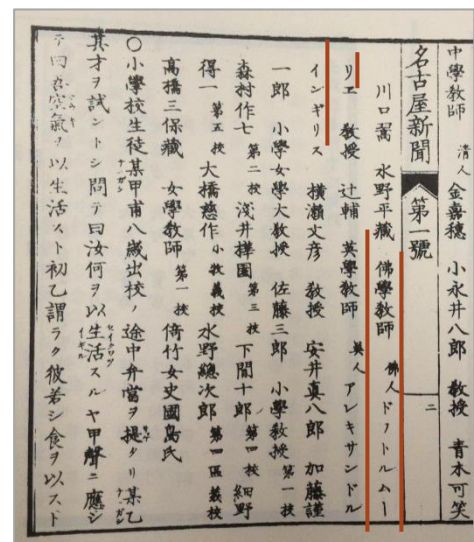 中學教師 清人 金嘉穗 小永井八郎 教授 青木可笑
名古屋新聞 第一號 二
川口嵩 水野平藏 佛學教師 佛人 ドクトルムー
リエ 教授 辻輔 英學教師 英人 アレキサンドル
インギリス 横瀬文彦 教授 安井真八郎 加藤謹
一郎 小學女學大教授 佐藤三郎 小學教授 第一校
森村作七 第二校 淺井擇園 第三校 下間十郎 第四校 細野
得一 第五校 大橋慈作 小教義校 水野總次郎 第四區義校
高橋三保藏 女學教師 第一校 倚竹女史國島氏
〇小學校生徒某甲甫八歳出校ノ途中弁當ヲ提タリ某乙
其才ヲ試ントシ問テ曰汝何ヲ以生活スルヤ甲聲ニ應シ
テ曰吾空氣ヲ以生活スト初乙謂ラク彼若シ食ヲ以スト